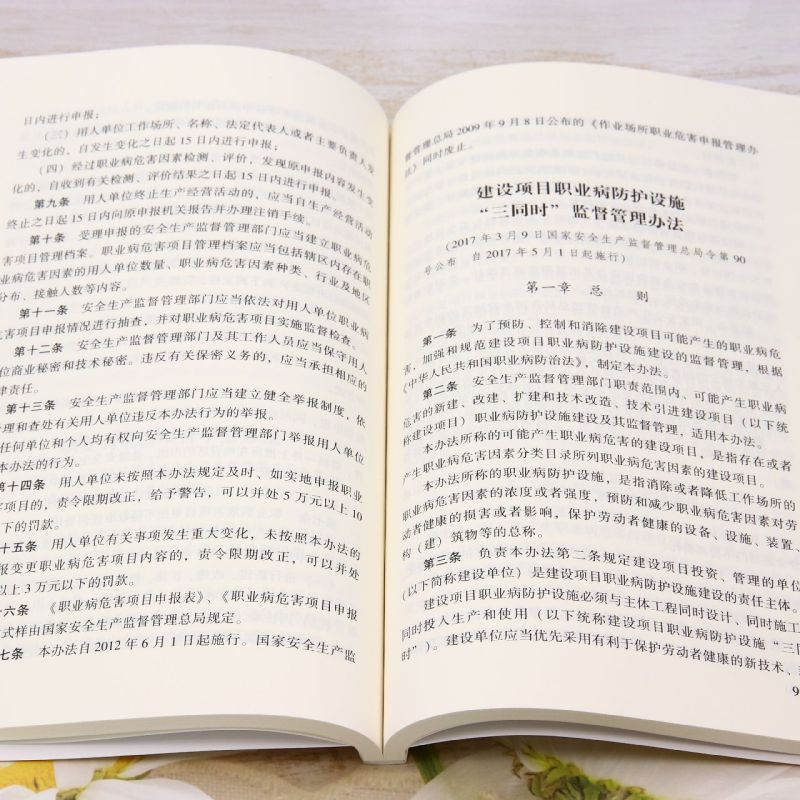 日内进行申报；
（三）用人单位工作场所、名称、法定代表人或者主要负责人发
生变化的，自发生变化之日起 15 日内进行申报；
（四）经过职业病危害因素检测、评价，发现原申报内容发生变
化的，自收到有关检测、评价结果之日起 15 日内进行申报。
第九条 用人单位终止生产经营活动的，应当自生产经营活动
终止之日起 15 日内向原申报机关报告并办理注销手续。
第十条 受理申报的安全生产监督管理部门应当建立职业病危
害项目管理档案。职业病危害项目管理档案应当包括辖区内存在职
业病危害因素的用人单位数量、职业病危害因素种类、行业及地区
分布、接触人数等内容。
第十一条 安全生产监督管理部门应当依法对用人单位职业病
危害项目申报情况进行抽查，并对职业病危害项目实施监督检查。
第十二条 安全生产监督管理部门及其工作人员应当保守用人
单位商业秘密和技术秘密。违反有关保密义务的，应当承担相应的
律责任。
第十三条 安全生产监督管理部门应当建立健全举报制度，依
受理和查处有关用人单位违反本办法行为的举报。
任何单位和个人均有权向安全生产监督管理部门举报用人单位
本办法的行为。
第十四条 用人单位未按照本办法规定及时、如实地申报职业
害项目的，责令限期改正，给予警告，可以并处 5 万元以上 10
下的罚款。
十五条 用人单位有关事项发生重大变化，未按照本办法的
报变更职业病危害项目内容的，责令限期改正，可以并处
以上 3 万元以下的罚款。
十六条 《职业病危害项目申报表》、《职业病危害项目申报
式样由国家安全生产监督管理总局规定。
七条 本办法自 2012 年 6 月 1 日起施行。国家安全生产监
督管理总局 2009 年 9 月 8 日公布的《作业场所职业危害申报管理办
法》同时废止。
建设项目职业病防护设施
“三同时”监督管理办法
（2017 年 3 月 9 日国家安全生产监督管理总局令第 90
号公布 自 2017 年 5 月 1 日起施行）
第一章 总 则
第一条 为了预防、控制和消除建设项目可能产生的职业病危
害，加强和规范建设项目职业病防护设施建设的监督管理，根据
《中华人民共和国职业病防治法》，制定本办法。
第二条 安全生产监督管理部门职责范围内、可能产生职业病
危害的新建、改建、扩建和技术改造、技术引进建设项目（以下统
称建设项目）职业病防护设施建设及其监督管理，适用本办法。
本办法所称的可能产生职业病危害的建设项目，是指存在或者
产生职业病危害因素分类目录所列职业病危害因素的建设项目。
本办法所称的职业病防护设施，是指消除或者降低工作场所的
职业病危害因素的浓度或者强度，预防和减少职业病危害因素对劳
动者健康的损害或者影响，保护劳动者健康的设备、设施、装置、
构（建）筑物等的总称。
第三条 负责本办法第二条规定建设项目投资、管理的单位
（以下简称建设单位）是建设项目职业病防护设施建设的责任主体。
建设项目职业病防护设施必须与主体工程同时设计、同时施工、
同时投入生产和使用（以下统称建设项目职业病防护设施“三同
时”）。建设单位应当优先采用有利于保护劳动者健康的新技术、
9